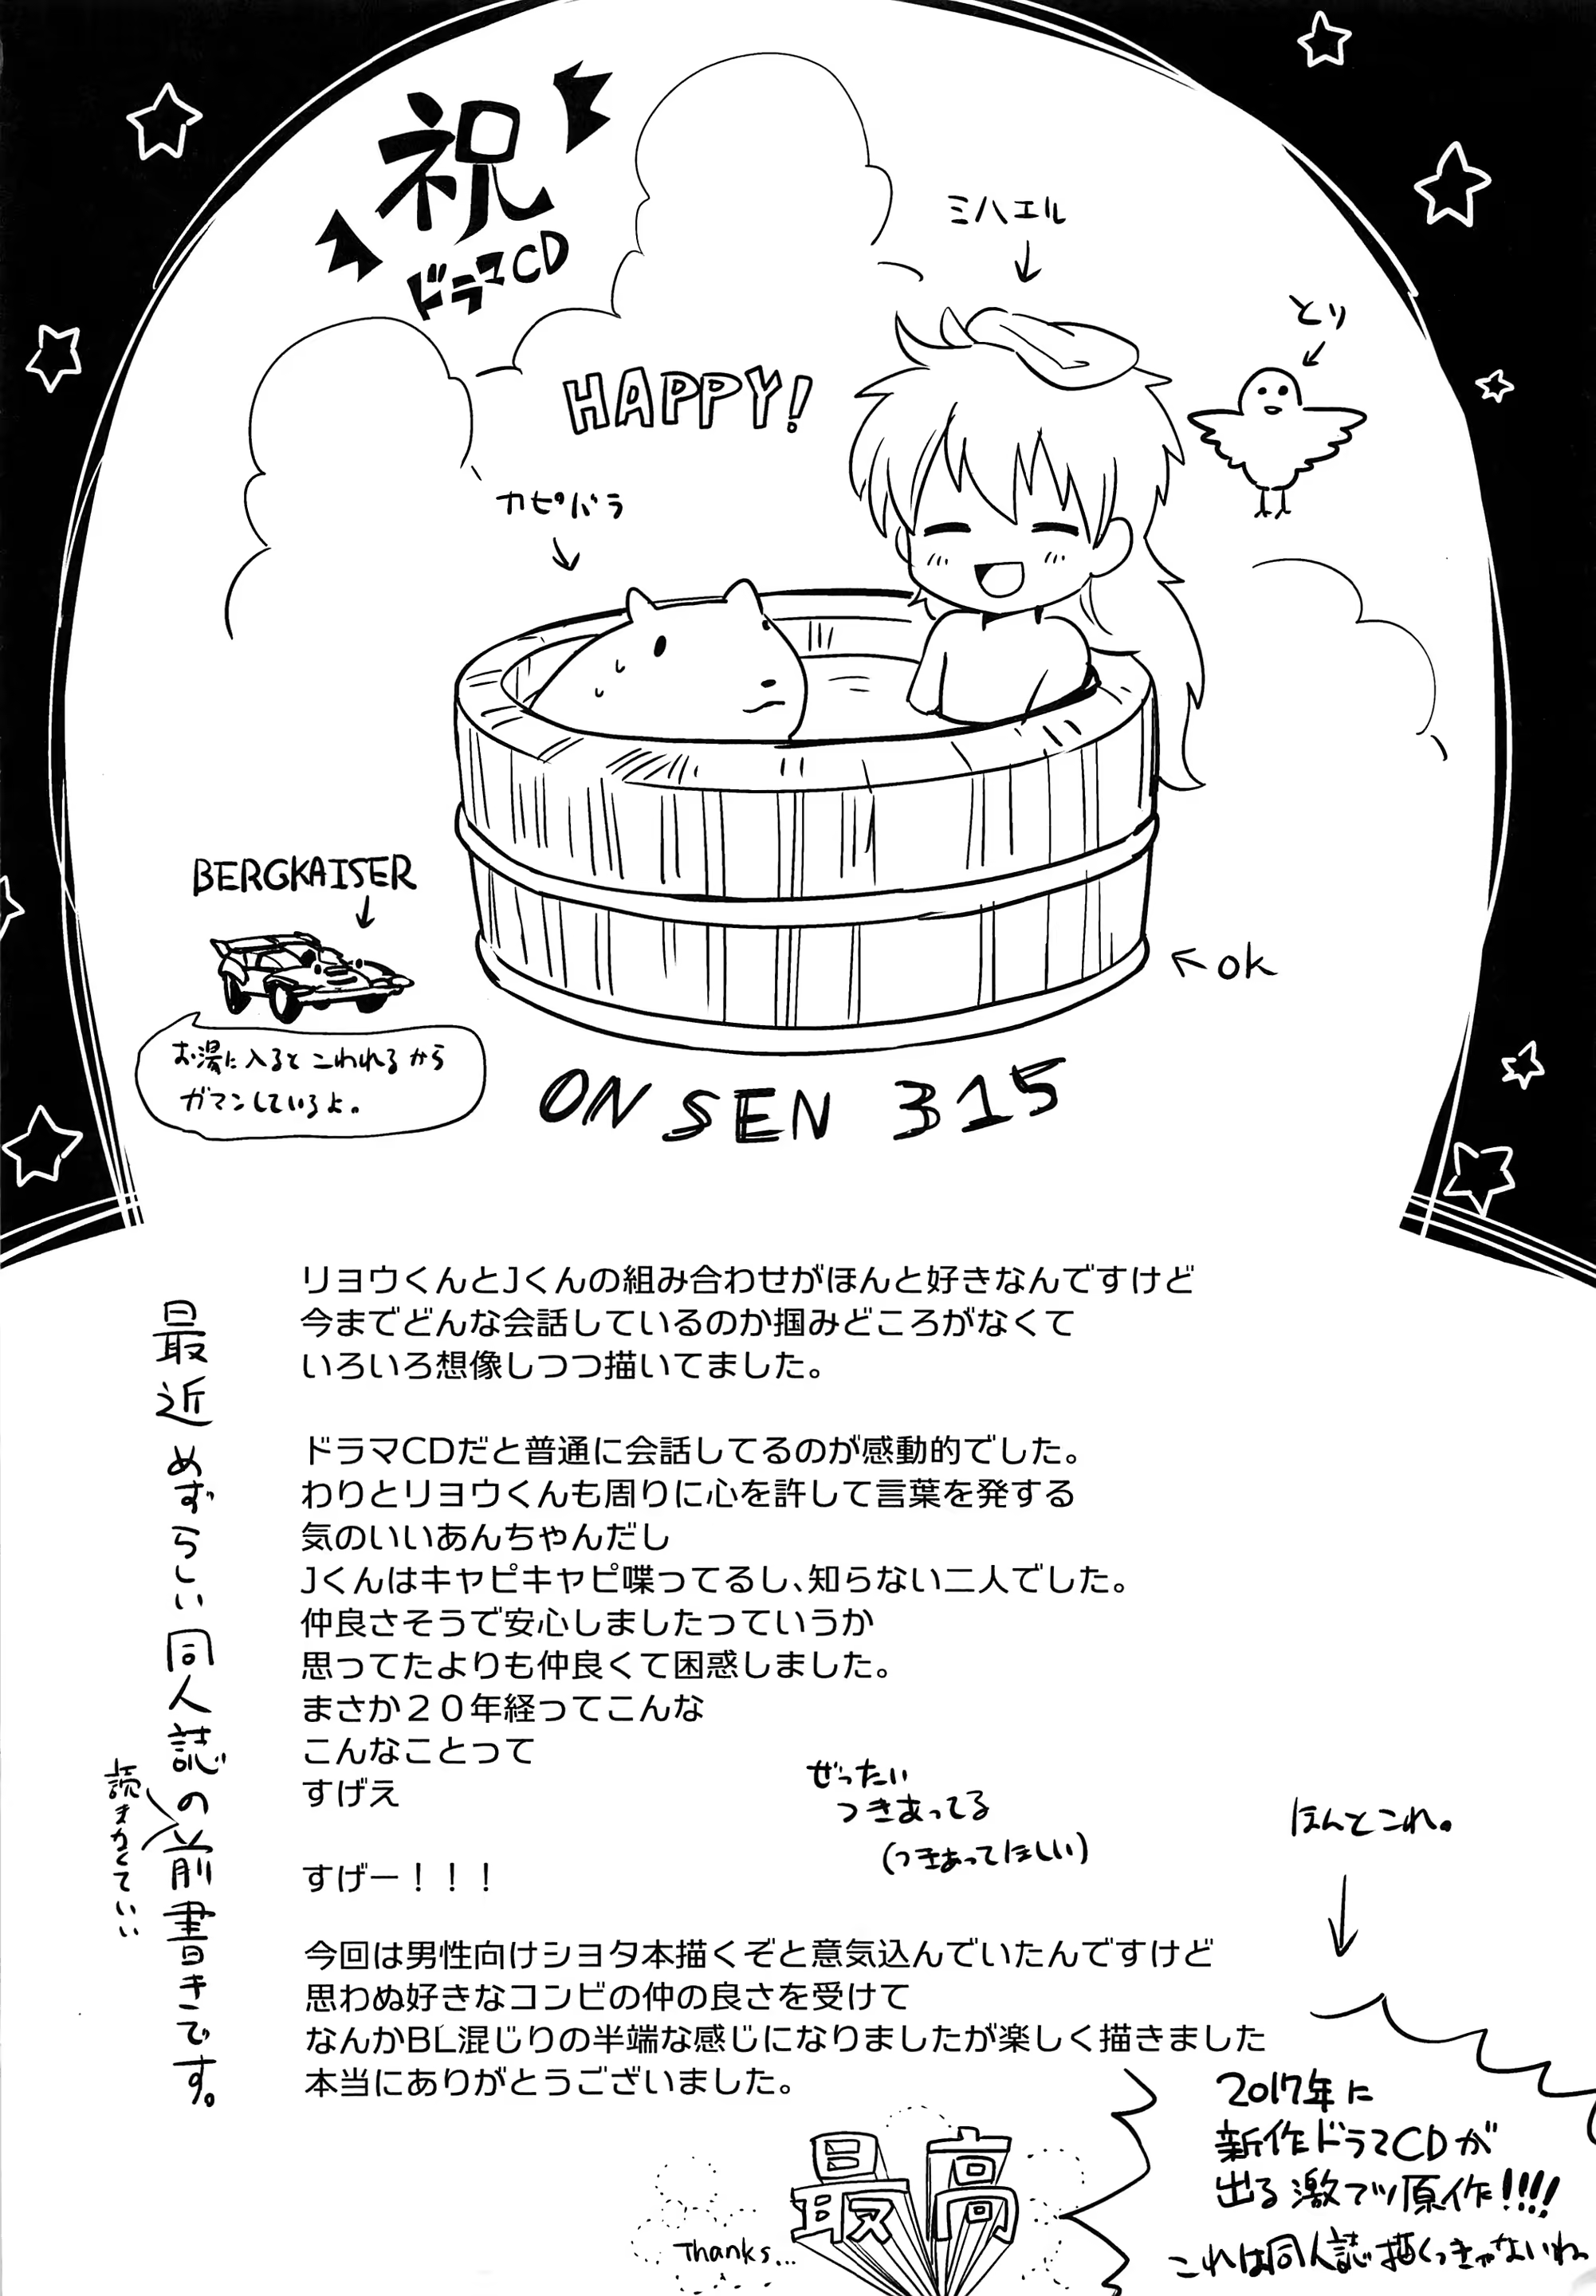 祝
ドラマCD
ミハエル
とり
HAPPY!
カピバラ
BERGKAISER
←OK
お湯に入るとこわれるから
ガマンしているよ。
ONSEN 315
最近めずらしい同人誌の前書きです。
読まなくていい
リョウくんとJくんの組み合わせがほんと好きなんですけど
今までどんな会話しているのか掴みどころがなくて
いろいろ想像しつつ描いてました。
ドラマCDだと普通に会話してるのが感動的でした。
わりとリョウくんも周りに心を許して言葉を発する
気のいいあんちゃんだし
Jくんはキャピキャピ喋ってるし、知らない二人でした。
仲良さそうで安心しましたっていうか
思ってたよりも仲良くて困惑しました。
まさか２０年経ってこんな
こんなことって
すげえ
ぜったい
つきあってる
(つきあってほしい)
すげー！！！
ほんとこれ。
今回は男性向けショタ本描くぞと意気込んでいたんですけど
思わぬ好きなコンビの仲の良さを受けて
なんかBL混じりの半端な感じになりましたが楽しく描きました
本当にありがとうございました。
Thanks...
最高
2017年に
新作ドラマCDが
出る激アツ原作!!!!
これは同人誌描くっきゃないわっ